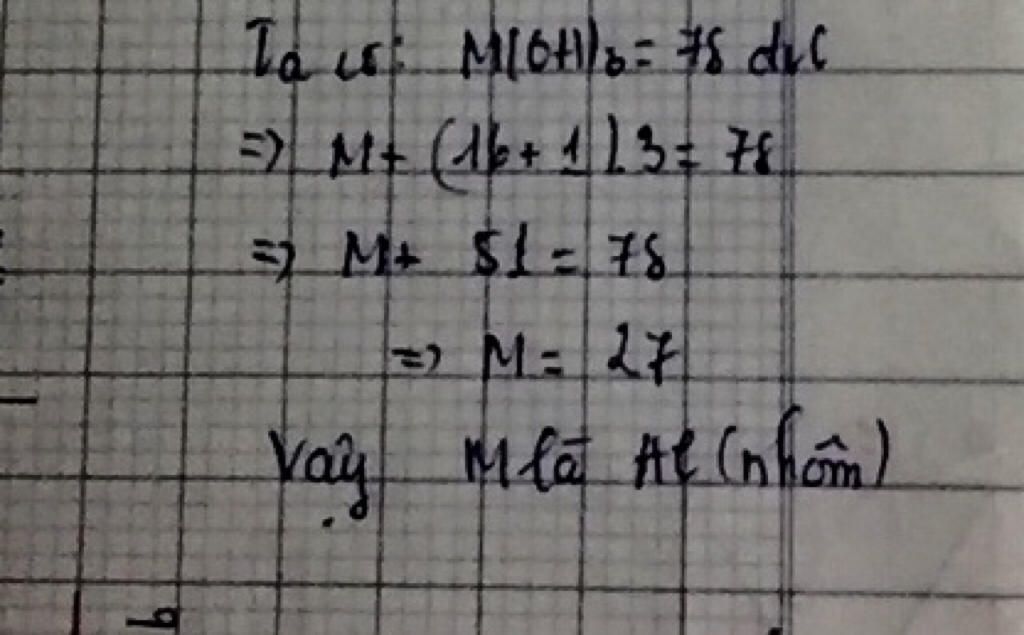 Ta có: M(OH)3 = 78 đvC
=> M + (16 + 1).3 = 78
=> M + 51 = 78
=> M = 27
Vậy M là Al (nhôm)